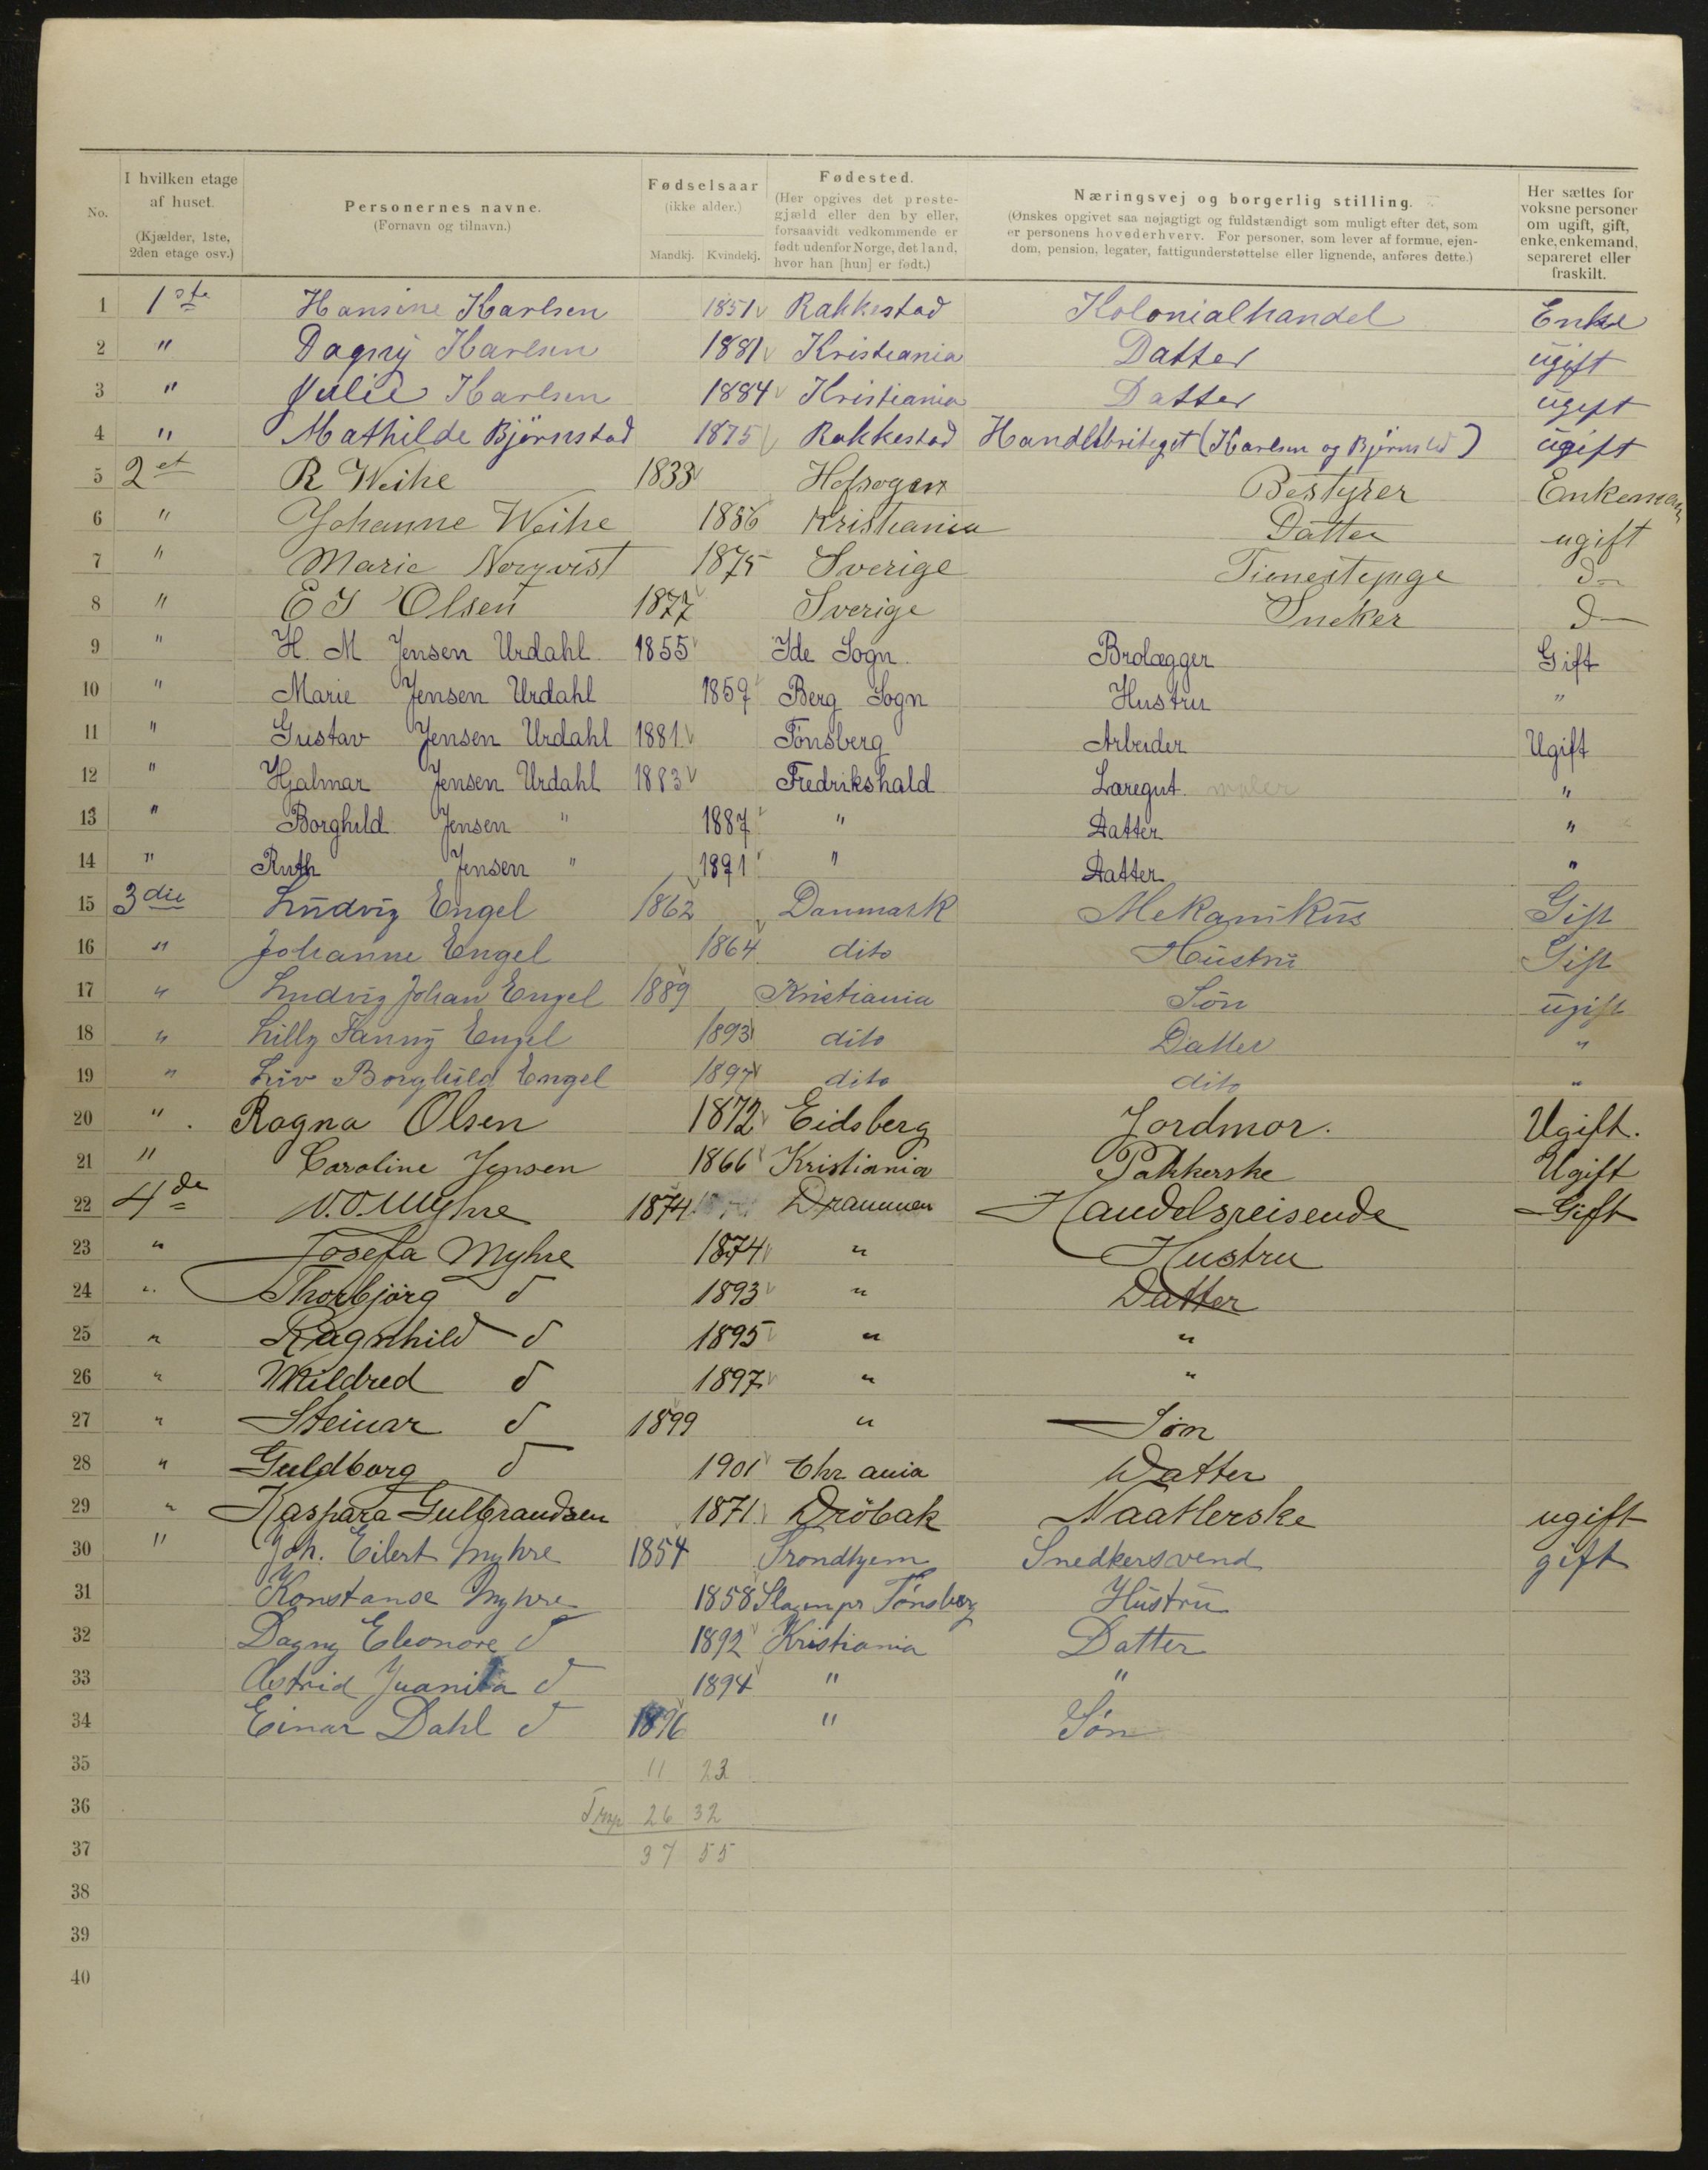 No.
I hvilken etage af huset. (Kjælder, 1ste, 2den etage osv.)
Personernes navne. (Fornavn og tilnavn.)
Fødselsaar (ikke alder.) Mandkj. Kvindekj.
Fødested. (Her opgives det prestegjæld eller den by eller, forsaavidt vedkommende er født udenfor Norge, det land, hvor han [hun] er født.)
Næringsvej og borgerlig stilling. (Ønskes opgivet saa nøjagtigt og fuldstændigt som muligt efter det, som er personens hovederhverv. For personer, som lever af formue, ejendom, pension, legater, fattigunderstøttelse eller lignende, anføres dette.)
Her sættes for voksne personer om ugift, gift, enke, enkemand, separeret eller fraskilt.
1 1ste Hansine Karlsen 1851 Rakkestad Kolonialhandel Enke
2 " Dagny Karlsen 1881 Kristiania Datter ugift
3 " Julie Karlsen 1884 Kristiania Datter ugift
4 " Mathilde Bjørnstad 1875 Rakkestad (Karlsen og Bjørnstad) ugift
5 2et R Weihe 1833 Bestyrer Enkeman
6 " Johanne Weihe 1886 Kristiania Datter ugift
7 " Marie 1875 Sverige d
8 " E J Olsen 1877 Sverige Sneker d
9 " H. M Jensen Urdahl 1855 Ide Sogn. Brolægger Gift
10 " Marie Jensen Urdahl 1859 Berg Sogn Hustru "
11 " Gustav Jensen Urdahl 1881 Tönsberg Arbeider Ugift
12 " Hjalmar Jensen Urdahl 1883 Fredrikshald Læregut. maler "
13 " Borghild Jensen " 1887 " Datter "
14 " Ruth Jensen " 1891 " Datter "
15 3die Ludvig Engel 1862 Danmark Mekanikus Gift
16 " Johanne Engel 1864 dito Hustru Gift
17 " Ludvig Johan Engel 1889 Kristiania Sön ugift
18 " Lilly Fanny Engel 1893 dito Datter "
19 " Liv Borghild Engel 1897 dito dito "
20 " Ragna Olsen 1872 Eidsberg Jordmor. Ugift.
21 " Caroline Jensen 1866 Kristiania Pakkerske Ugift
22 4de N. O. Myhre 1874 Drammen Handelsreisende Gift
23 " Josefa Myhre 1874 " Hustru
24 " Thorbjörg d 1893 " Datter
25 " Ragnhild d 1895 " "
26 " Mildred d 1897 " "
27 " Steinar d 1899 " Søn
28 " Guldborg d 1901 Chr ania Datter
29 " Kaspara Gulbrandsen 1871 Dröbak Naatlerske ugift
30 " Joh. Eilert Myhre 1854 Trondhjem Snedkersvend gift
31 Konstanse Myhre 1858 Slagen pr Tönsberg Hustru
32 Dagny Eleonore d 1892 Kristiania Datter
33 Astrid Juanita d 1894 " "
34 Einar Dahl d 1896 " Søn
35 11 23
36 26 32
37 37 55
38
39
40